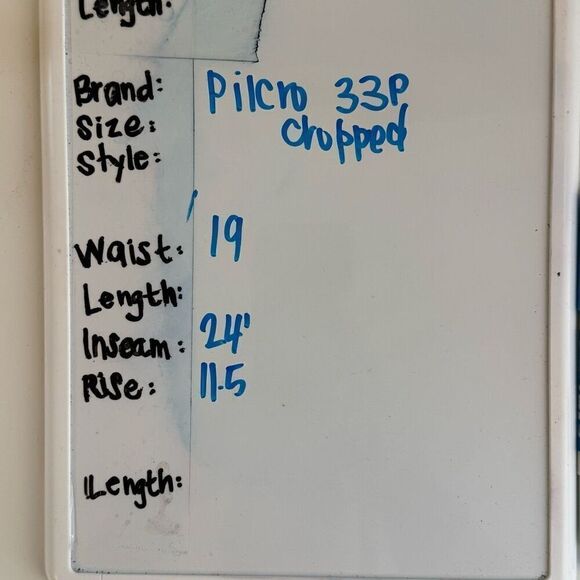 Length:
Brand: Pilcro 33P
Size: cropped
Style:
Waist: 19
Length:
Inseam: 24'
Rise: 11.5
Length: